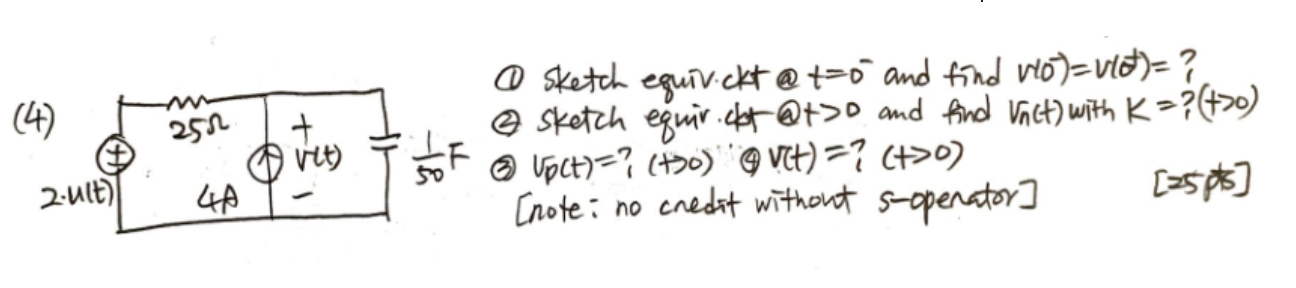 ① sketch equiv.ckt @ t=0⁻ and find v(0⁻)=v(0⁺)=?
(4) 25Ω + v(t) − 1/50 F
② sketch equiv.ckt @ t>0 and find Vn(t) with K=? (t>0)
③ Vp(t)=? (t>0) ④ V(t)=? (t>0)
2·u(t) 4A
[note: no credit without s-operator] [25pts]